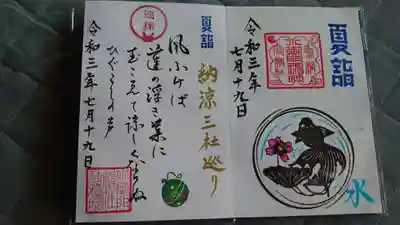 夏詣
令和三年
七月十九日
水
夏詣
納涼三社巡り
風ふけば
蓮の浮き葉に
玉こえて涼しくなりぬ
ひぐらしの声
令和三年 七月十九日